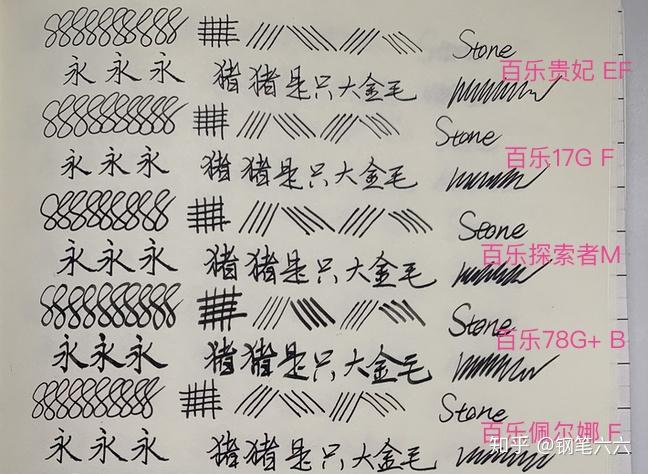 Stone
百乐贵妃 EF
永 永 永 猪猪是只大金毛
Stone
百乐17G F
永 永 永 猪猪是只大金毛
Stone
百乐探索者M
永 永 永 猪猪是只大金毛
Stone
百乐78G+ B
永 永 永 猪猪是只大金毛
Stone
百乐佩尔娜 F
知乎 @钢笔六六
永 永 永 猪猪是只大金毛